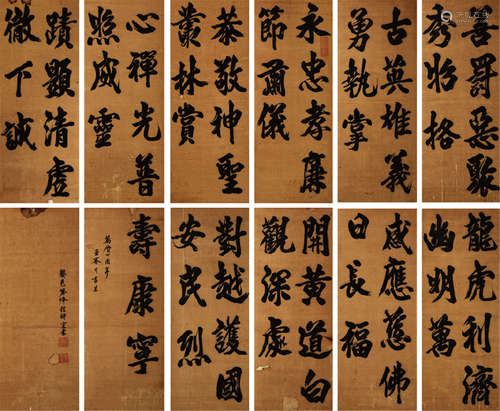 善罰惡聚
秀將格
古英雄義
勇執掌
永忠孝廉
節肅儀
恭敬神聖
叢林賞
心禪光普
照威靈
蹟顯清虛
徹下誠
龍虎利濟
幽明萬
感應慈佛
日長福
開黃道白
觀深處
對越護國
安民烈
壽康寧